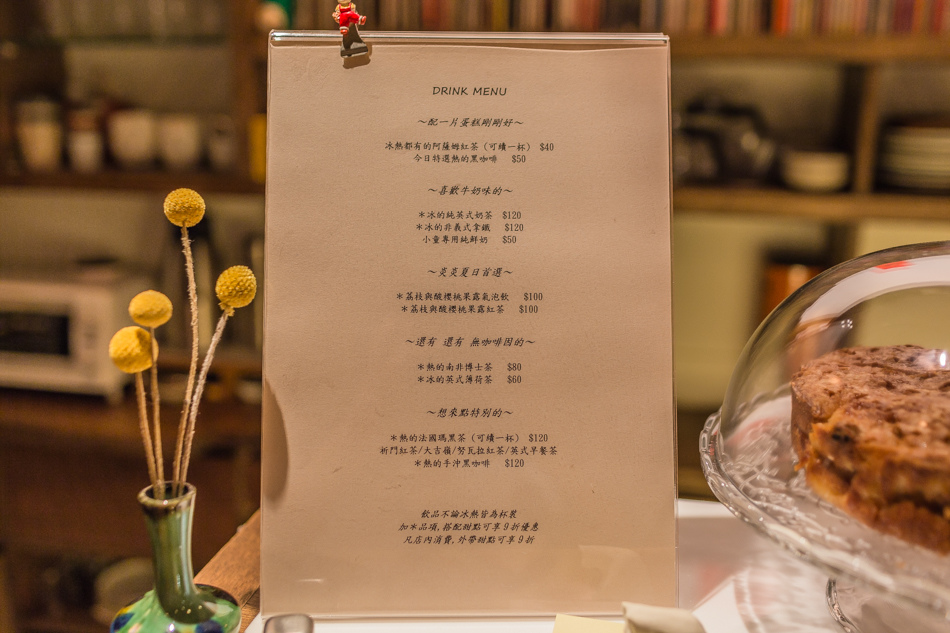 DRINK MENU
～配一片蛋糕剛剛好～
冰熱都有的阿薩姆紅茶（可續一杯） $40
今日特選熱的黑咖啡 $50
～喜歡牛奶味的～
＊冰的純英式奶茶 $120
＊冰的非義式拿鐵 $120
小童專用純鮮奶 $50
～炎炎夏日首選～
＊荔枝與酸櫻桃果露氣泡飲 $100
＊荔枝與酸櫻桃果露紅茶 $100
～還有 還有 無咖啡因的～
＊熱的南非博士茶 $80
＊冰的英式薄荷茶 $60
～想來點特別的～
＊熱的法國瑪黑茶（可續一杯） $120
祈門紅茶/大吉嶺/努瓦拉紅茶/英式早餐茶
＊熱的手沖黑咖啡 $120
飲品不論冰熱皆為杯裝
加＊品項,搭配甜點可享9折優惠
凡店內消費,外帶甜點可享9折